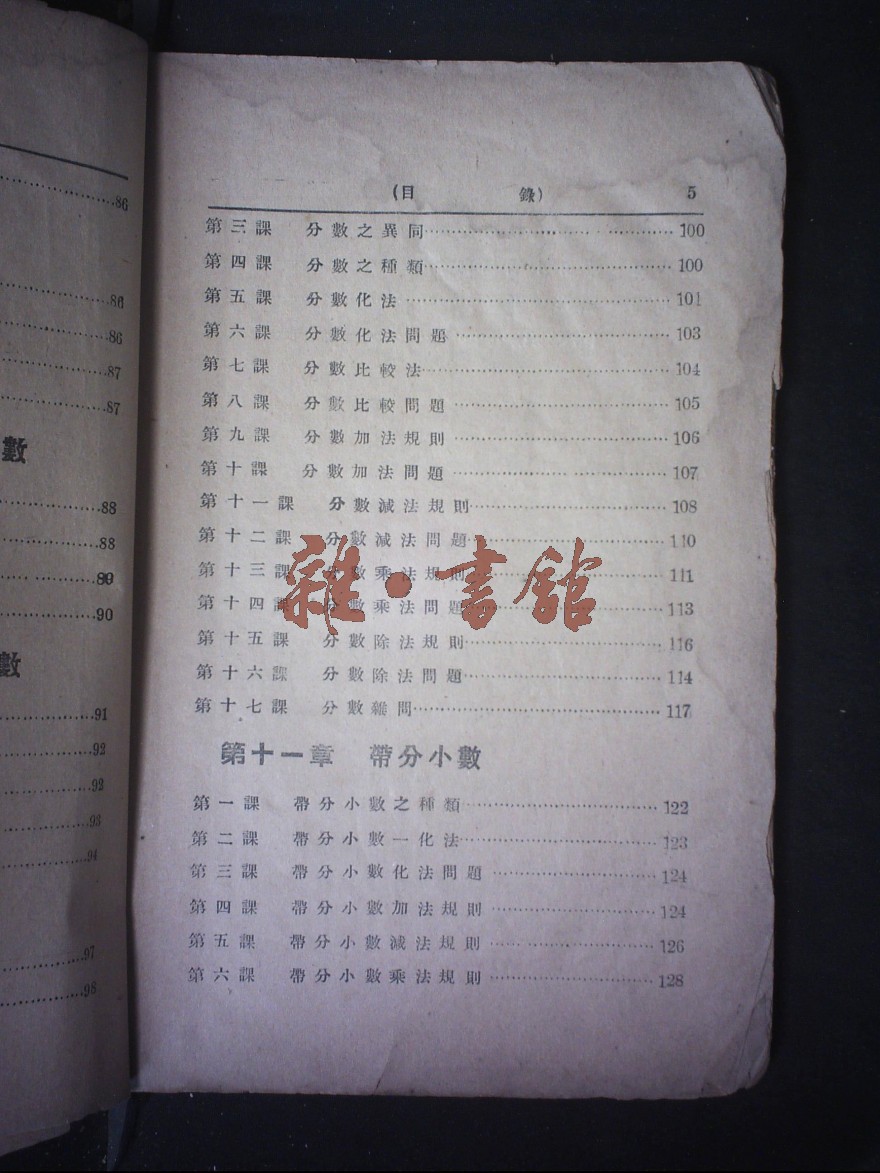 86
86
86
87
87
數
88
88
89
90
數
91
92
92
93
94
97
98
(目 錄) 5
第三課 分數之異同……100
第四課 分數之種類……100
第五課 分數化法……101
第六課 分數化法問題……103
第七課 分數比較法……104
第八課 分數比較問題……105
第九課 分數加法規則……106
第十課 分數加法問題……107
第十一課 分數減法規則……108
第十二課 分數減法問題……110
第十三課 分數乘法規則……111
第十四課 分數乘法問題……113
第十五課 分數除法規則……116
第十六課 分數除法問題……114
第十七課 分數雜問……117
第十一章 帶分小數
第一課 帶分小數之種類……122
第二課 帶分小數一化法……123
第三課 帶分小數化法問題……124
第四課 帶分小數加法規則……124
第五課 帶分小數減法規則……126
第六課 帶分小數乘法規則……128
雜·書館